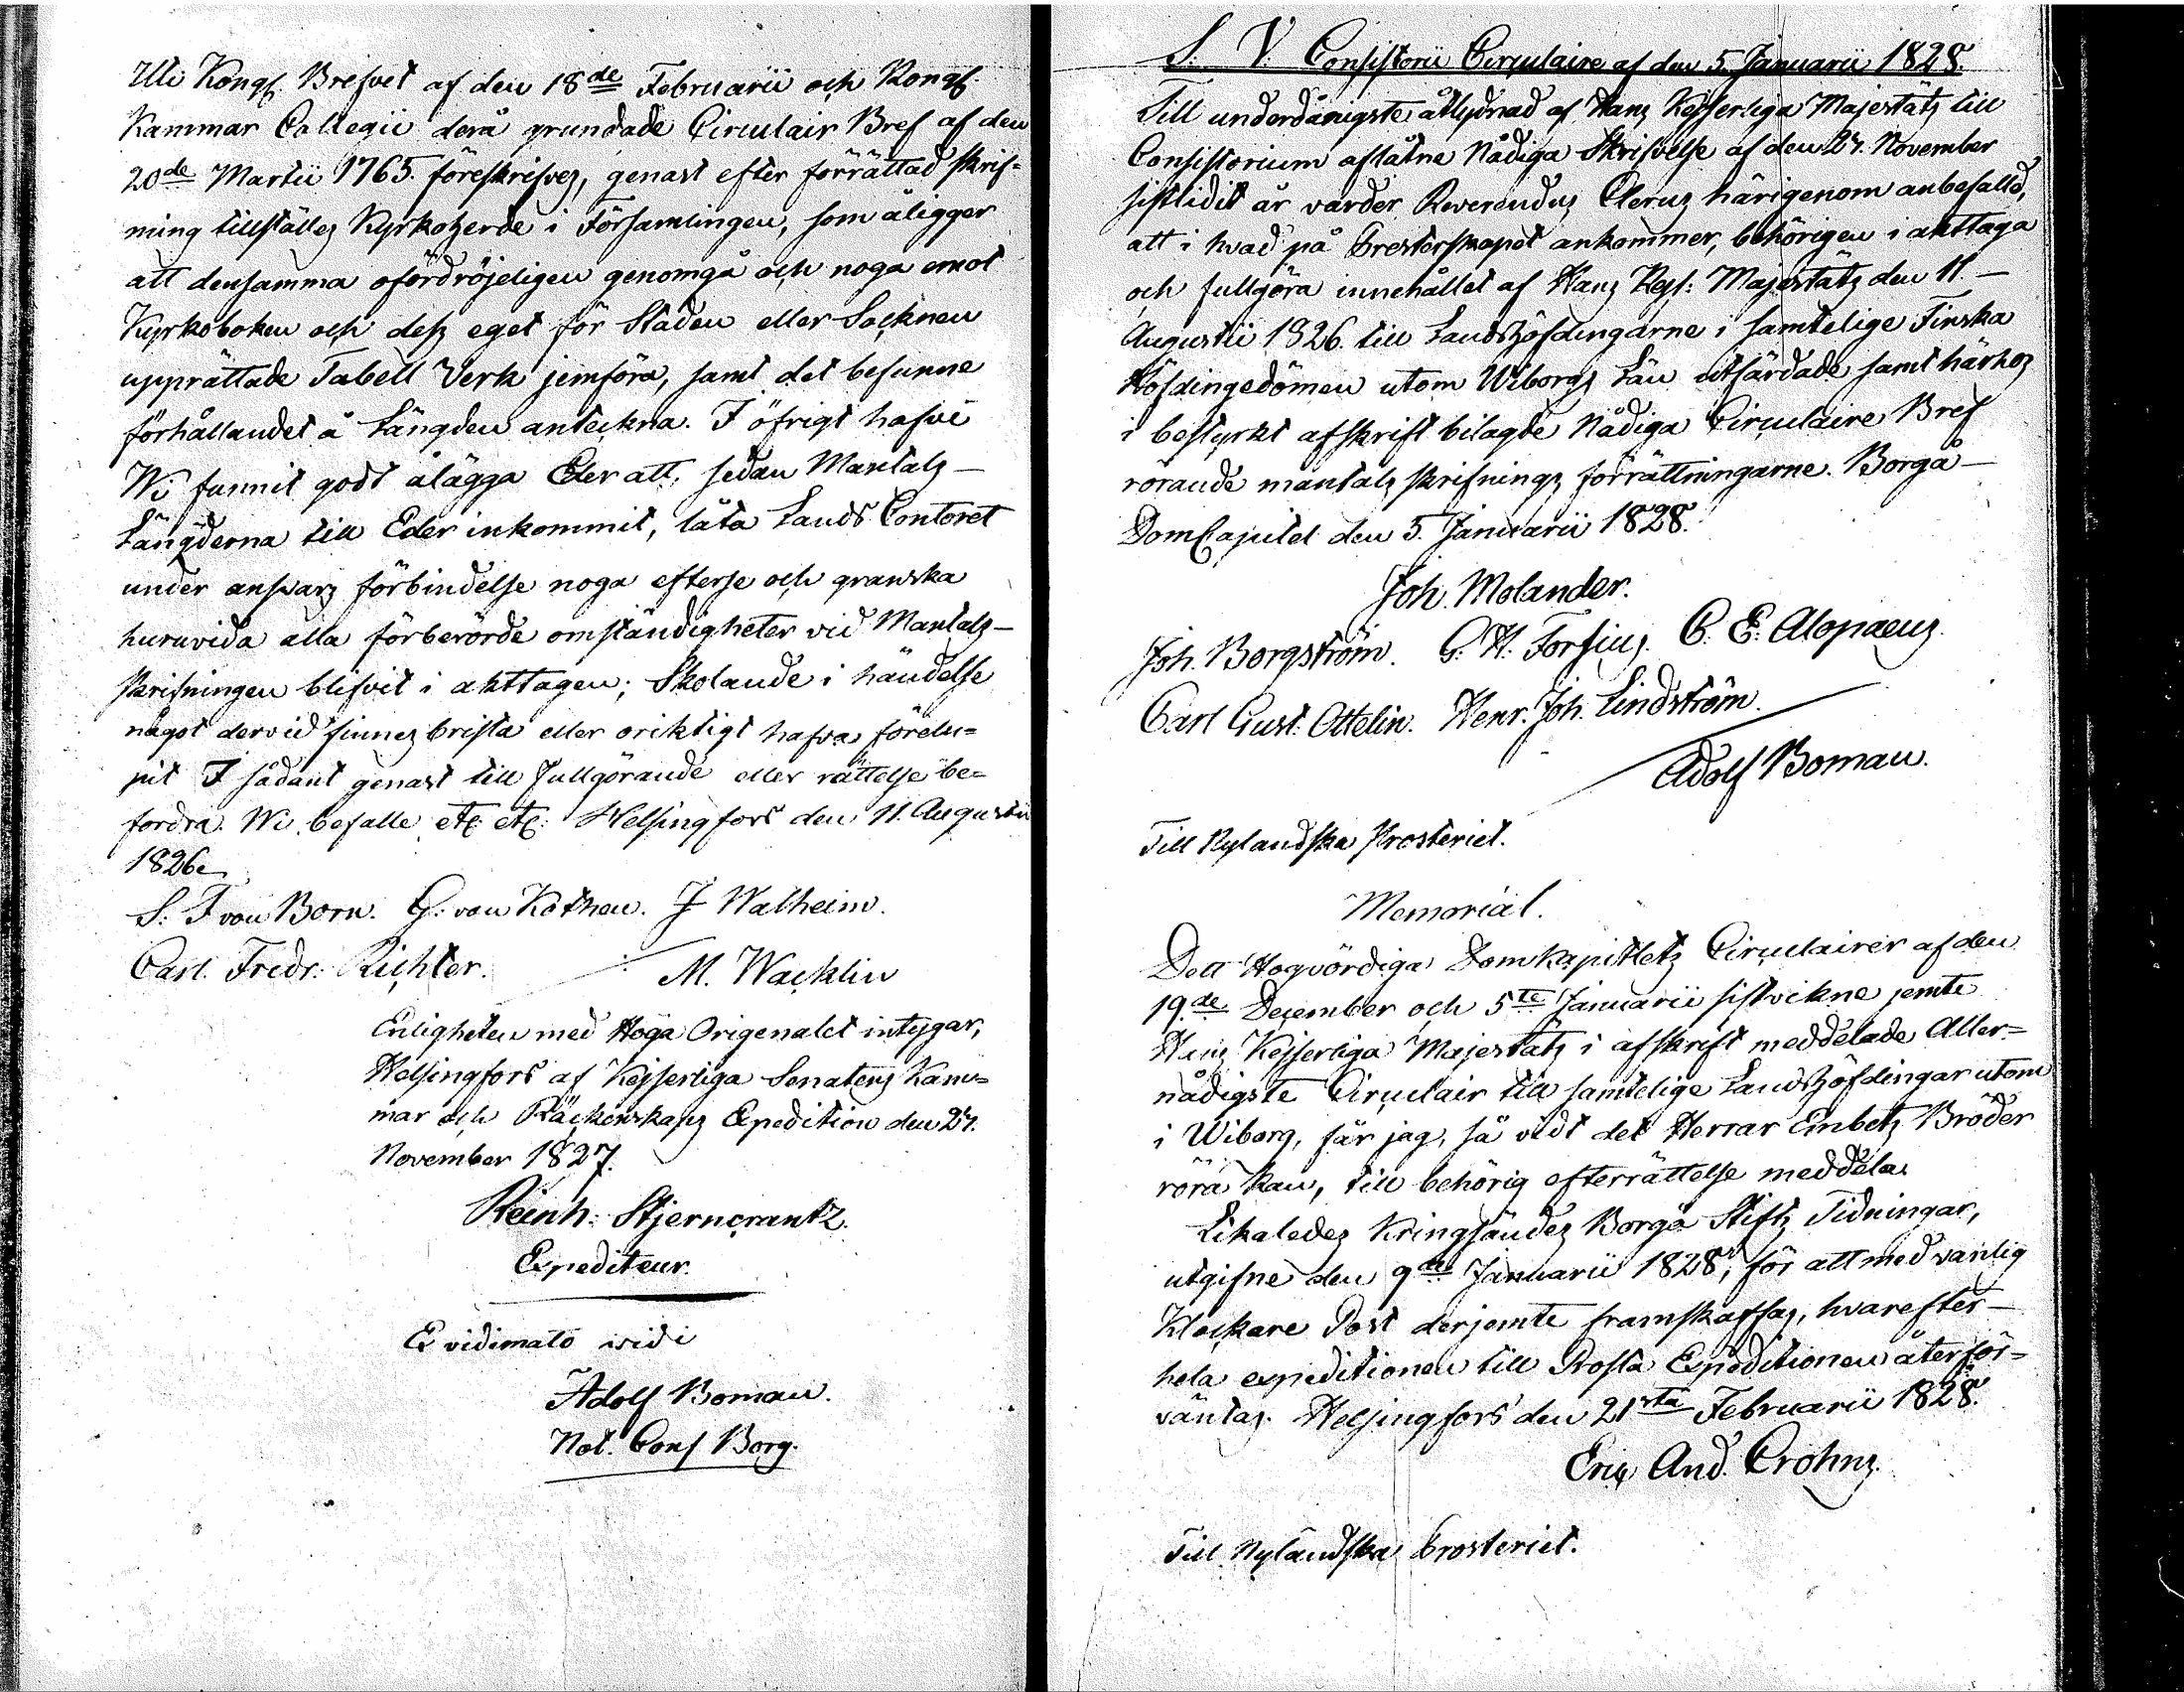 Uti Kongl. Brefvet af den 18de Februarii och Kongl.
Kammar Collegii derå grundade Circulair Bref af den
20de Martii 1765. föreskrifves, genast efter förrättad skrif=
ning tillställes Kyrkoherde i Församlingen, som åligger
att densamma ofördröjeligen genomgå och noga emot
Kyrkoboken och dess eget för Staden eller Socknen
upprättade Tabell Verk jemföra, samt det befunne
förhållandet å Längden anteckna. I öfrigt hafve
Wi funnit godt ålägga Eder att, sedan Mantals-
Längderna till Eder inkommit, låta Lands Contoret
under answars förbindelse noga efterse och granska
huruvida alla förberörde omständigheter vid Mantals-
skrifningen blifvit i akttagen; Skolande i händelse
något dervid finnes brista eller oriktigt hafva förelu=
pit I sådant genast till fullgörande eller rättelse be=
fordra. Wi befalle etc etc: Helsingfors den 11. Augustii
1826.
S: F von Born. G: von Kothen. J Walheim.
Carl Fredr: Richter. M. Wacklin
Enligheten med Höga Origenalet intygar,
Helsingfors af Kejserliga Senatens Kam=
mar och Räckenskaps Expedition den 27.
November 1827.
Reinh: Stjerncrantz.
Expediteur.
Ex vidimato vidi
Adolf Boman.
Not. Cons Borg.
S: V: Consistorii Circulaire af den 5. Januarii 1828.
Till underdånigste åtlydnad af Hans Kejserliga Majestäts till
Consistorium aflåtne Nådiga Skrifvelse af den 27. November
sistlidit år varder Reverendus Clerus härigenom anbefalld,
att i hvad på Presterskapet ankommer, behörigen i akttaga
och fullgöra innehållet af Hans Kejs: Majestäts den 11.-
Augustii 1826. till Landshöfdingarne i samtelige Finska
Höfdingedömen utom Wiborgs Län utfärdade samt härhos
i bestyrkt afskrift bilagde Nådiga Circulaire Bref
rörande mantals skrifnings förrättningarne. Borgå-
DomCapitel den 5. Januarii 1828.
Joh. Molander.
Joh. Borgström. G: H: Forsius. C: E: Alopaeus.
Carl Gust: Ottelin. Henr. Joh. Lindström.
Adolf Boman.
Till Nylandska Prosteriet.
Memorial.
Dett Högvördiga Domkapitlets Circulairer af den
19.de December och 5te Januarii sistvikne jemte
Hans Kejserliga Majestäts i afskrift meddelade Aller=
nådigste Circulair till samtelige Landshöfdingar utom
i Wiborg, får jag, så vidt det Herrar Embets Bröder
röra kan, till behörig efterrättelse meddela.
Likaledes Kringsändes Borgå Stifts Tidningar,
utgifne den 9de Januarii 1828, för att med vanlig
Klockare Post derjemte framskaffas, hvarefter-
hela expeditionen till Prosta Expeditionen återför=
väntas. Helsingfors den 21sta Februarii 1828.
Eric And. Crohns.
Till Nylandska Prosteriet.